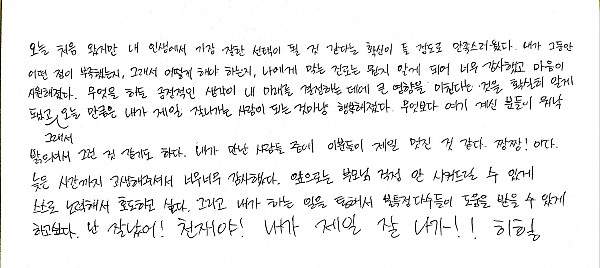 오늘 처음 왔지만 내 인생에서 가장 잘한 선택이 될 것 같다는 확신이 들 정도로 만족스러웠다. 내가 그동안
어떤 점이 부족했는지, 그래서 어떻게 해야 하는지, 나에게 맞는 진로는 뭔지 알게 되어 너무 감사했고 마음이
시원해졌다. 무엇을 하든 긍정적인 생각이 내 미래를 결정하는 데에 큰 영향을 미친다는 것을 확실히 알게
됐고, 오늘 만큼은 내가 제일 잘나가는 사람이 되는 것마냥 행복해졌다. 무엇보다 여기 계신 분들이 워낙
그래서
밝으셔서 그런 것 같기도 하다. 내가 만난 사람들 중에 이분들이 제일 멋진 것 같다. 짱짱!
늦은 시간까지 고생해주셔서 너무너무 감사했다. 앞으로는 부모님 걱정 안 시켜드릴 수 있게
스스로 노력해서 효도하고 싶다. 그리고 내가 하는 일을 통해서 불특정다수들이 도움을 받을 수 있게
하고싶다. 난 잘났어! 천재야! 내가 제일 잘 나가!! 히힣